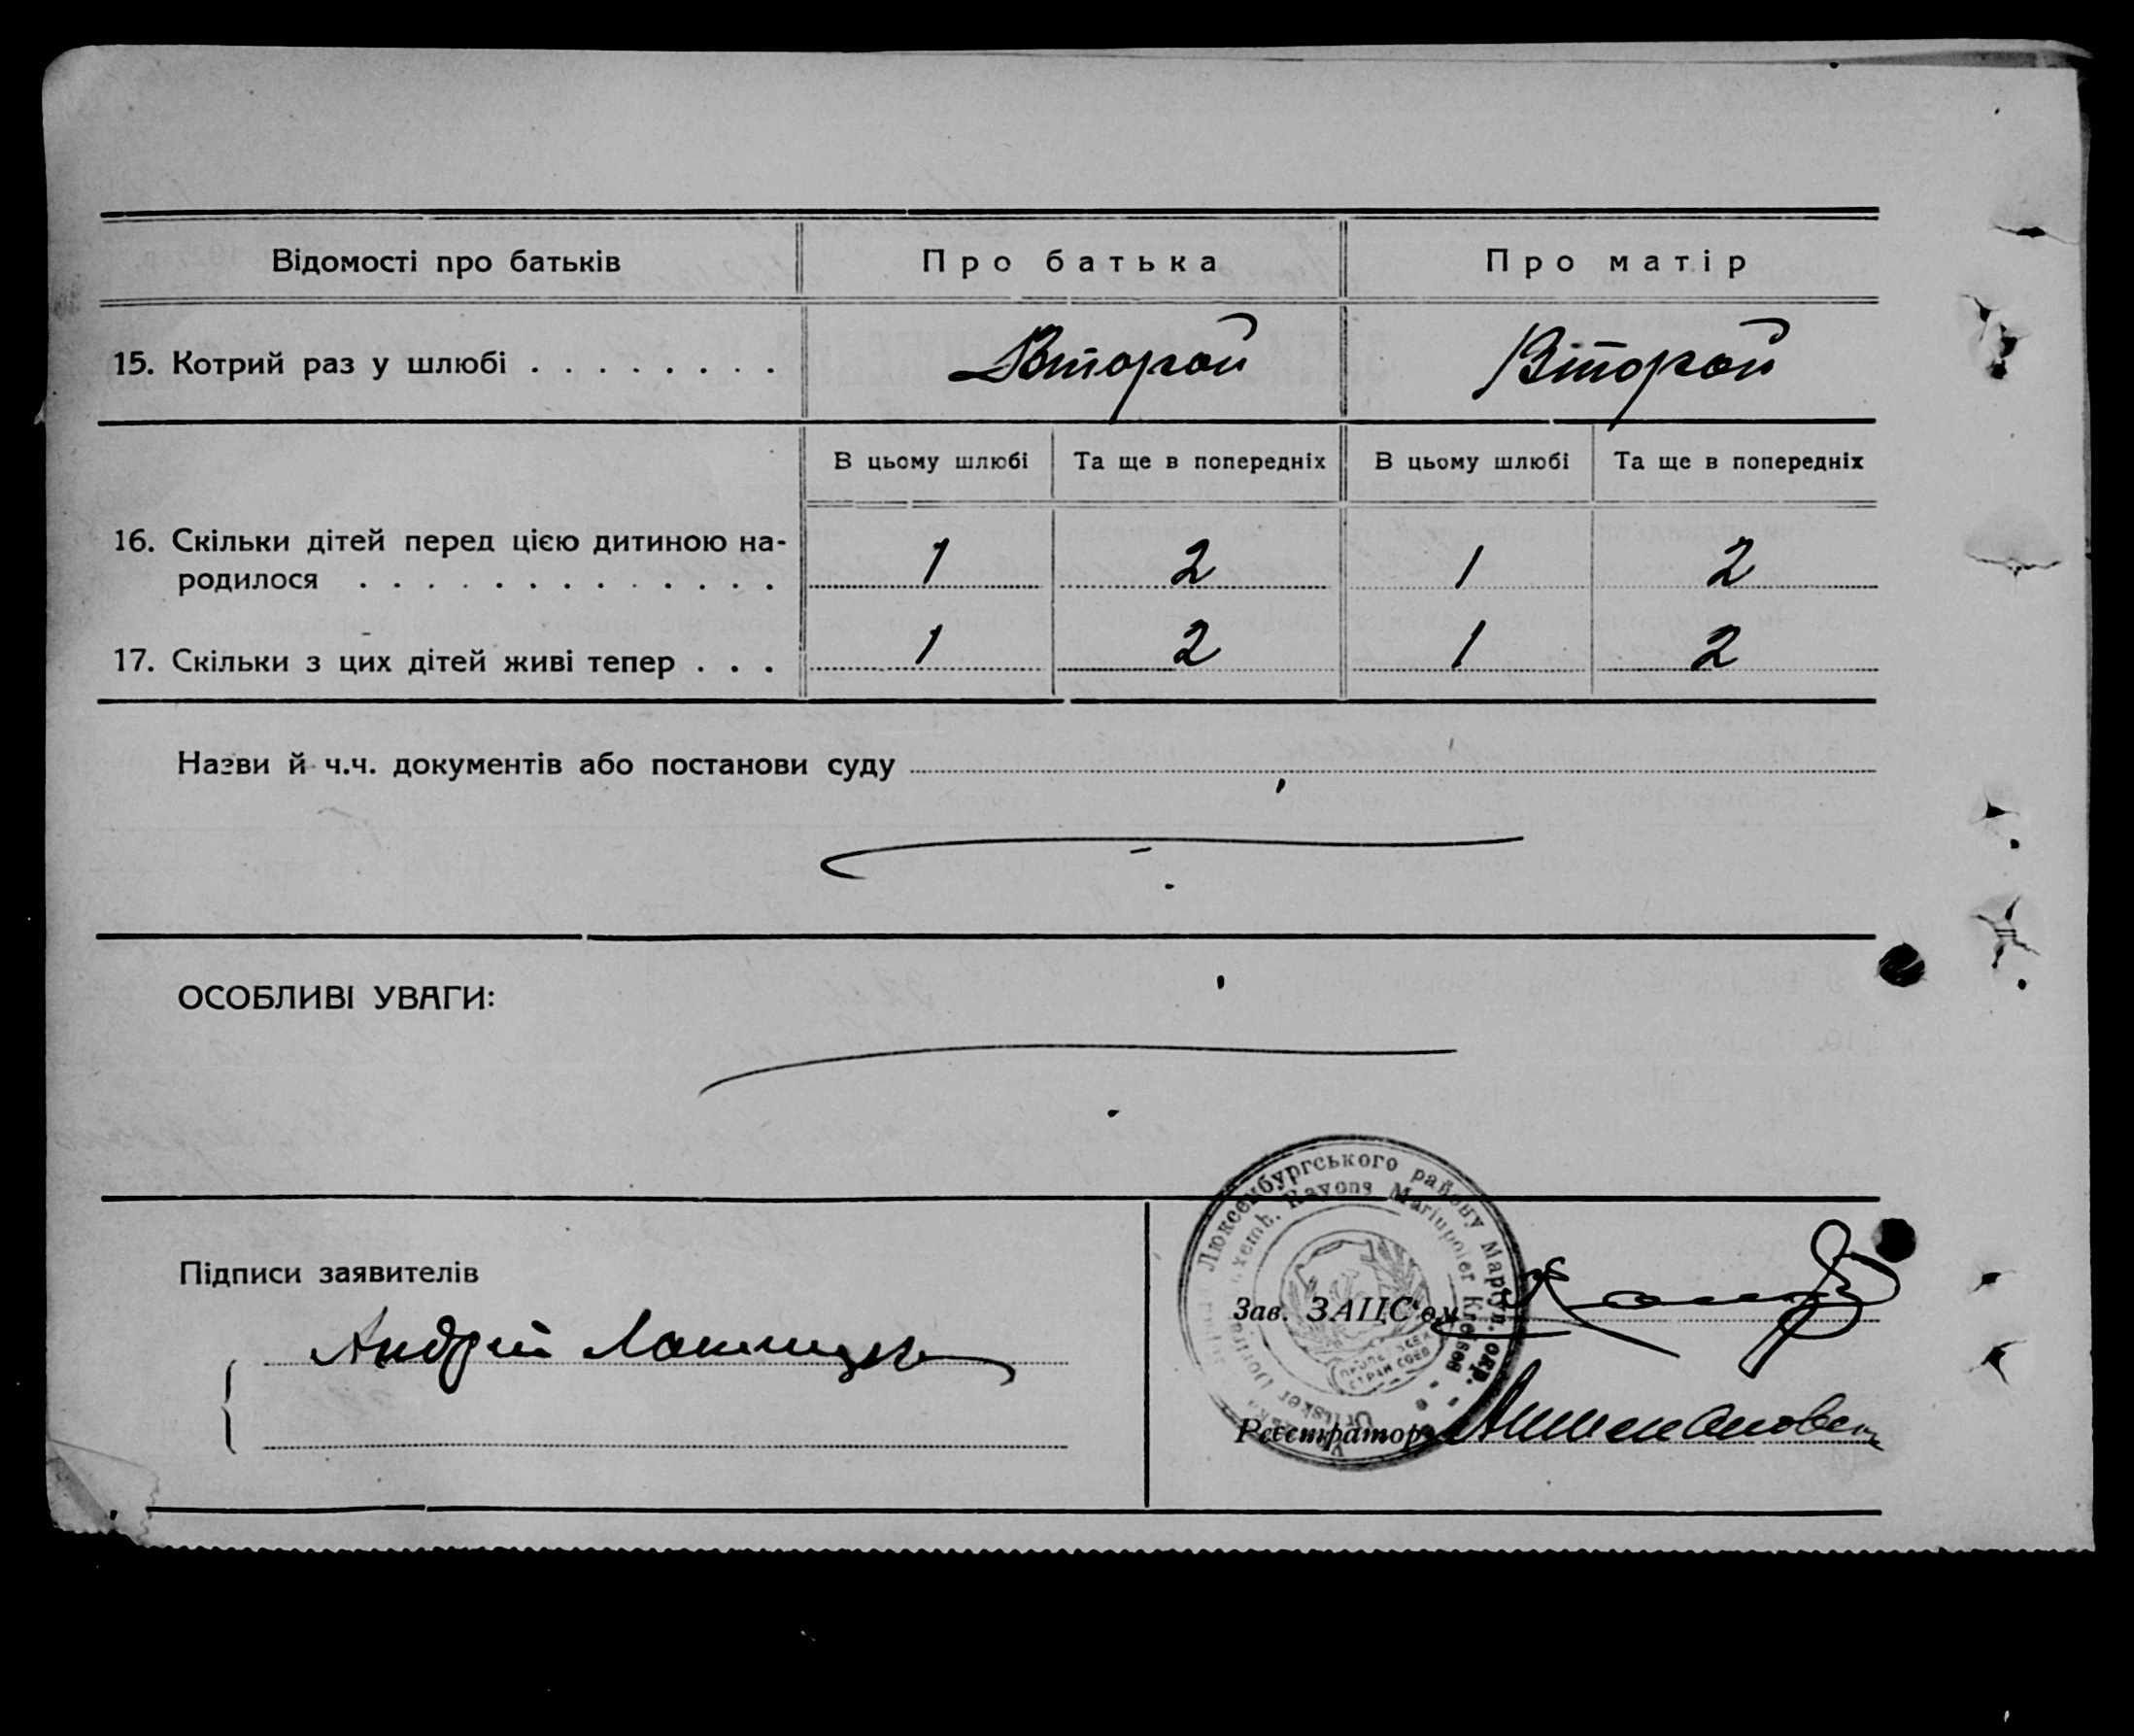 Відомості про батьків
Про батька
Про матір
15. Котрий раз у шлюбі . . . . . . . .
Второй
Второй
В цьому шлюбі
Та ще в попередніх
В цьому шлюбі
Та ще в попередніх
16. Скільки дітей перед цією дитиною на-
родилося . . . . . . . . . . . . .
1
2
1
2
17. Скільки з цих дітей живі тепер . . .
1
2
1
2
Назви й ч.ч. документів або постанови суду
ОСОБЛИВІ УВАГИ:
Люксембургського району Маріуп. окр.
Rayons Mariupoler Kreises
Підписи заявителів
Андрій
Зав. ЗАЦС'ом
Реєстратор